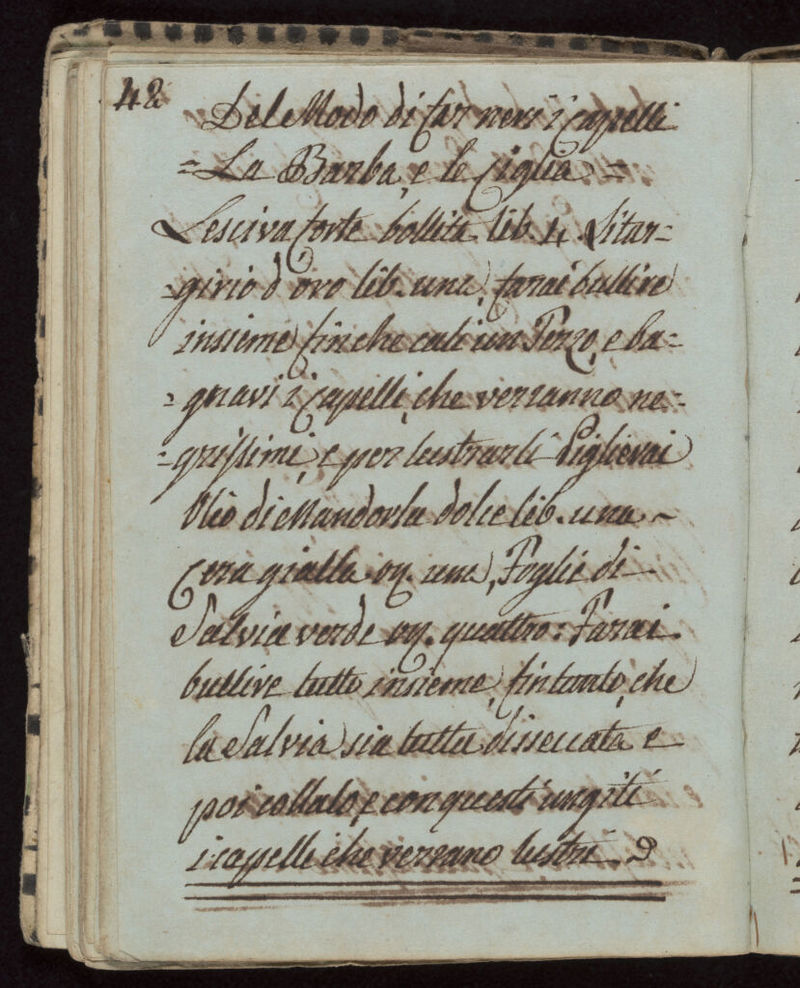 48
Del Modo di far neri i capelli
= La Barba, e le Ciglia =
Lesciva forte bollita lib. 4 Litar=
=girio d'oro lib. una, farai bullire
insieme finche cali un Terzo, e ba=
=gnavi i Capelli, che verranno ne=
=grissimi, e per lustrarli Piglierai
Olio di Mandorla dolce lib. una ~
Cera gialla on. una, Foglie di
Salvia verde on. quattro: Farai
bullire tutto insieme, fintanto, che
la Salvia sia tutta disseccata e
poi collalo, e con questi ungiti
i capelli che verrano lustri.